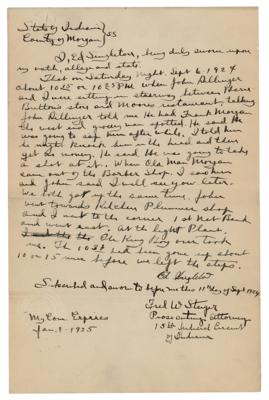 State of Indiana
County of Morgan } SS
I, Ed Singleton, being duly sworn upon
my oath, allege and state.
That on Saturday Night. Sept 6. 1924
about 10 00 or 10 15 PM when John Dillinger
and I were sitting in stairway between
Buttons store and Moores restaurant, talking
John Dillinger told me He had Frank Morgan
the west end grocery man spotted. He said He
was going to lay him after while. I told him
he might knock him in the head and then
get no money. He said He was going to take
a shot at it. When Old Man Morgan
came out of the Barber Shop. I saw him
and John said I will see you later.
We both got up the same time, John
went towards Kitchen Plummer shop
and I went to the corner 1st Nat Bank
and went east. At the light Plant.
the King Boy over took
me. The 10 55 had been gone up about
10 or 15 min before we left the steps.
Ed Singleton
Subscribed and sworn to before me this 11th day of Sept 1924
Fred W Steiger
Prosecuting Attorney
15th Judicial Circuit
of Indiana
My Com Expires
Jan. 1 - 1925